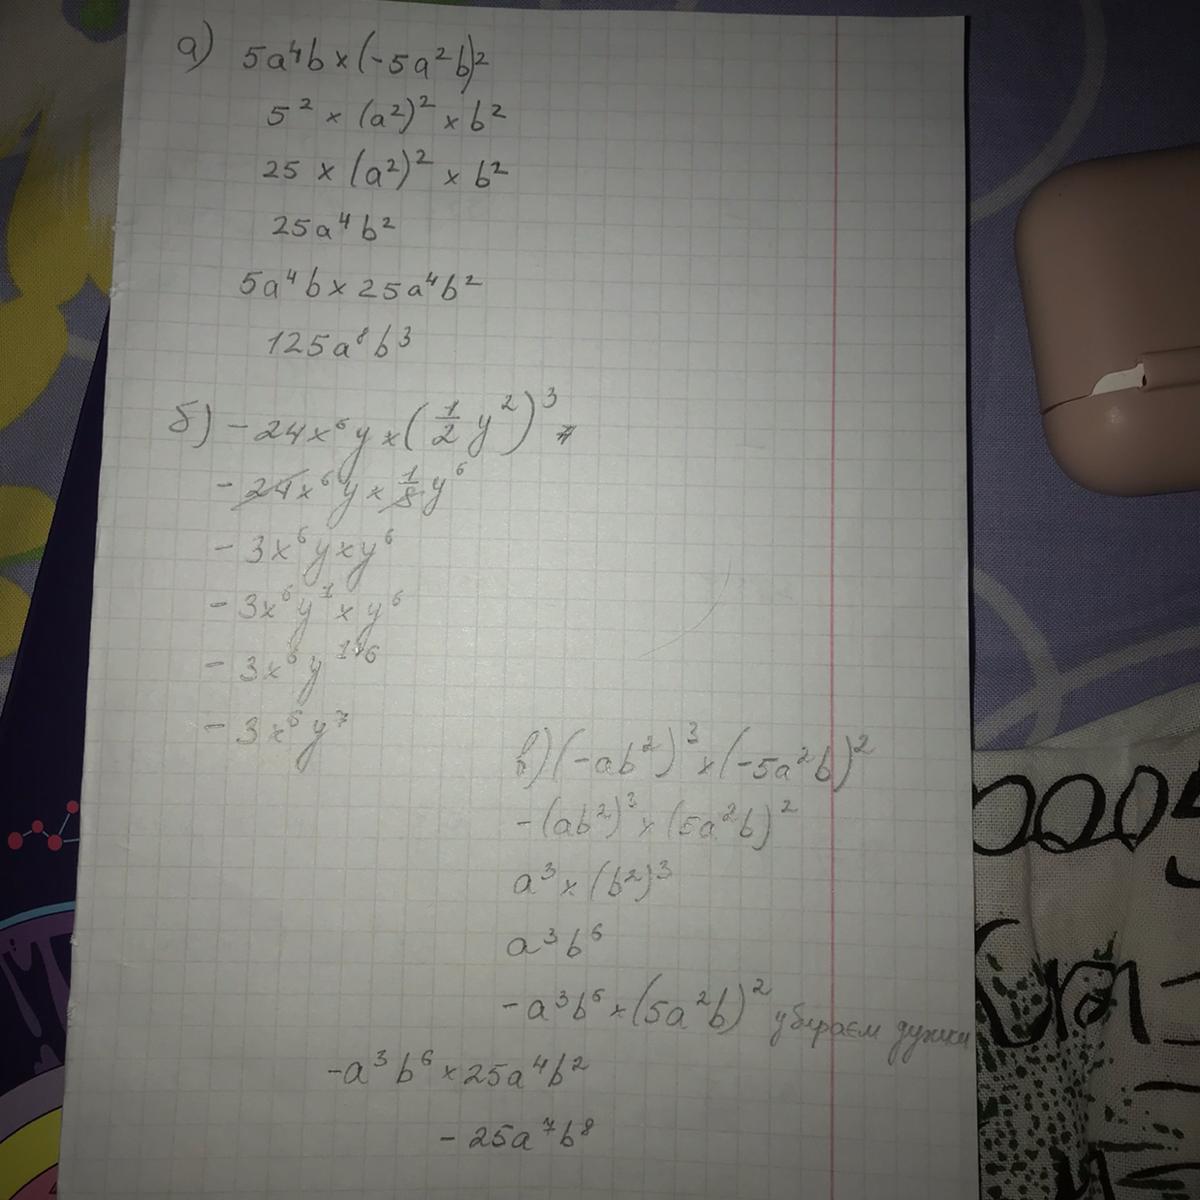 а) 5a⁴b × (-5a²b)²
5² × (a²)² × b²
25 × (a²)² × b²
25a⁴b²
5a⁴b × 25a⁴b²
125a⁸b³
б) -24x⁶y × (1/2 y²)³
-24x⁶y × 1/8 y⁶
-3x⁶y × y⁶
-3x⁶y¹ × y⁶
-3x⁶y¹⁺⁶
-3x⁶y⁷
в) (-ab²)³ × (-5a²b)²
-(ab²)³ × (5a²b)²
a³ × (b²)³
a³b⁶
-a³b⁶ × (5a²b)² убираем дужки
-a³b⁶ × 25a⁴b²
-25a⁷b⁸